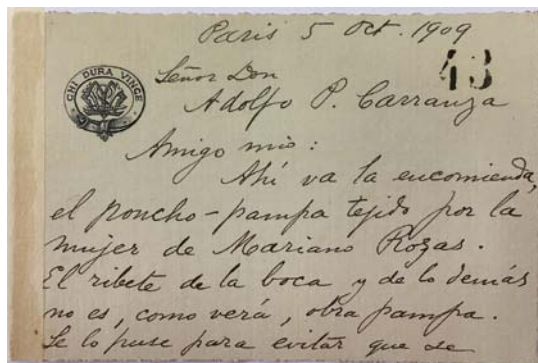 Paris 5 Oct. 1909
43
CHI DURA VINCE
Señor Don
Adolfo P. Carranza
Amigo mio:
Ahí va la encomienda,
el poncho-pampa tejido por la
mujer de Mariano Rozas.
El ribete de la boca y de lo demás
no es, como verá, obra pampa.
Se lo puse para evitar que se